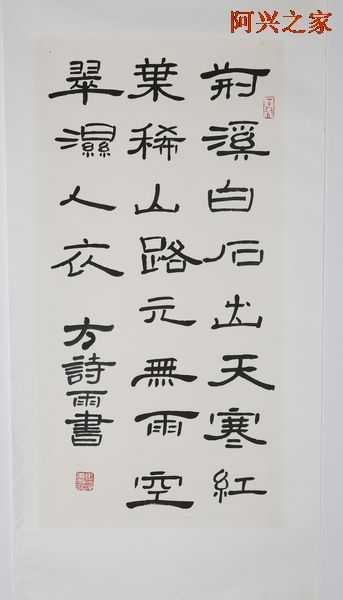 阿兴之家
荆溪白石出天寒紅
葉稀山路元無雨空
翠濕人衣
方詩雨書